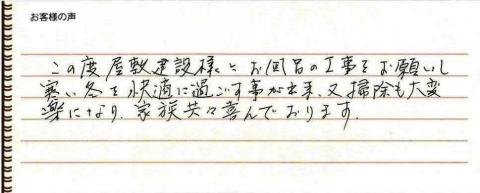 お客様の声
この度屋敷建設様にお風呂の工事をお願いし
寒い冬を快適に過ごす事が出来、又掃除も大変
楽になり、家族共々喜んでおります。